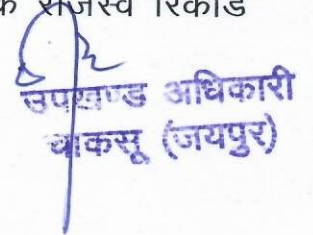 राजस्व रिकार्ड
उपखण्ड अधिकारी
चाकसू (जयपुर)